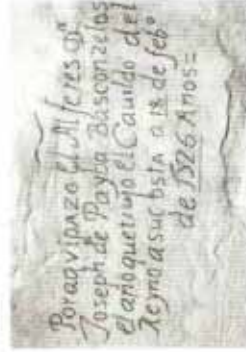 Por aqui pazo el Alferes Dn
Joseph de Payba Basconzelos
el año que trujo el Cauildo del
Reyno a su costa a 18 de febº
de 1526 Años=